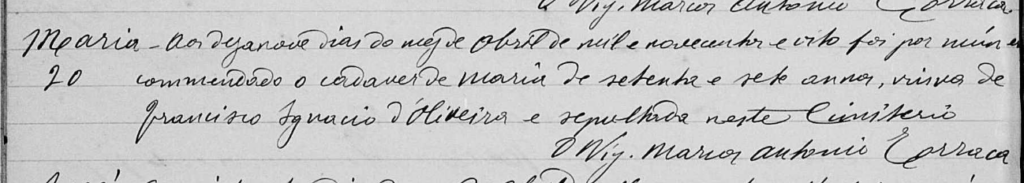 O Vig. Marcos Antonio Torraca
Maria - Aos dezanove dias do mez de Abril de mil e novecentos e oito foi por mim en
20 commendado o cadaver de Maria de setenta e sete annos, viuva de
Francisco Ignacio d'Oliveira e sepultada neste Cimiterio
O Vig. Marcos Antonio Torraca